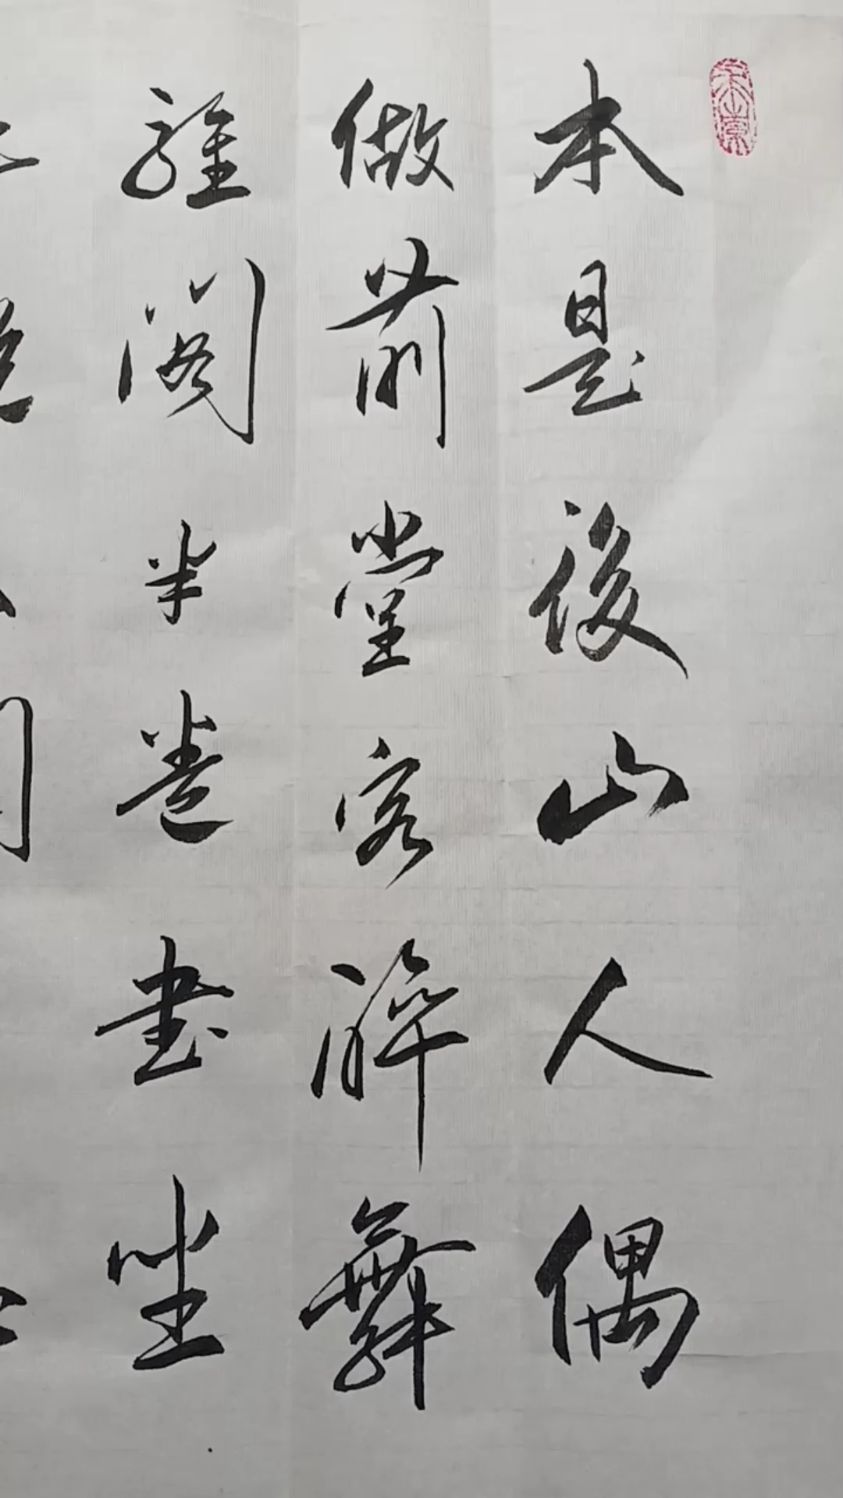 本是後山人偶
做前堂客醉舞
經閣半卷書坐